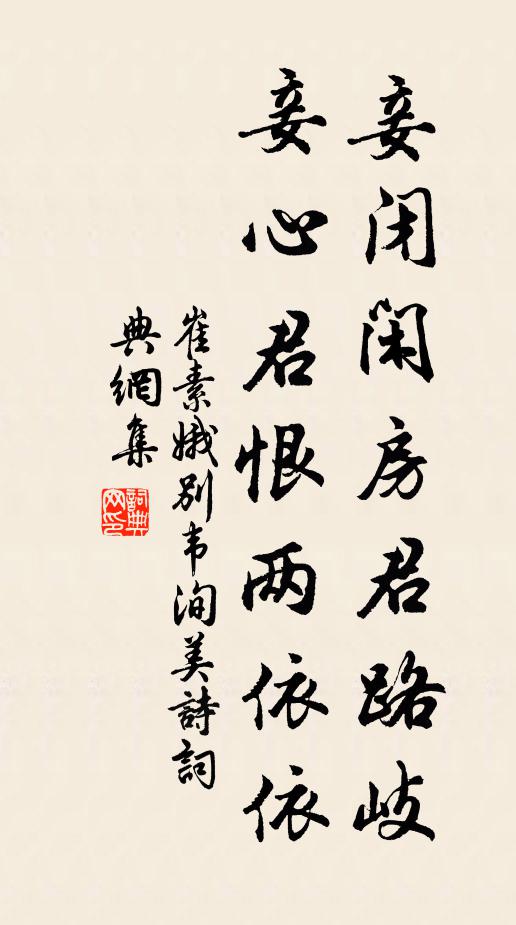 妾闭闲房君路岐
妾心君恨两依依
崔素娥别韦洵美詩詞
典網集
詞典网印